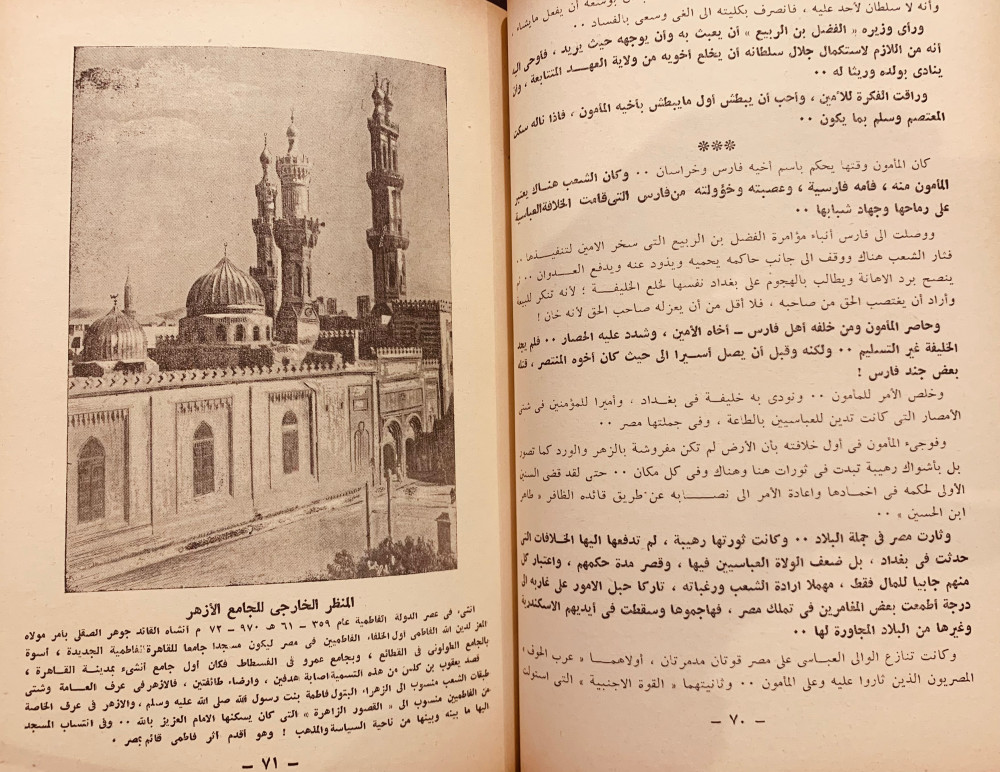 وأنه لا سلطان لأحد عليه ، فانصرف بكليته الى الغى وسعى بالفساد ..
ورأى وزيره « الفضل بن الربيع » أن يعبث به وأن يوجهه حيث يريد ، فأوحى اليه
أنه من اللازم لاستكمال جلال سلطانه أن يخلع أخويه من ولاية العهد المتتابعة ، وأن
ينادى بولده وريثا له ..
وراقت الفكرة للأمين ، وأحب أن يبطش أول مايبطش بأخيه المأمون ، فاذا ناله سكن
المعتصم وسلم بما يكون ..
***
كان المأمون وقتها يحكم باسم أخيه فارس وخراسان .. وكان الشعب هناك يعتبر
المأمون منه ، فامه فارسية ، وعصبته وخؤولته من فارس التى قامت الخلافة العباسية
على رماحها وجهاد شبابها ..
ووصلت الى فارس أنباء مؤامرة الفضل بن الربيع التى سخر الامين لتنفيذها ..
فثار الشعب هناك ووقف الى جانب حاكمه يحميه ويذود عنه ويدفع العدوان ..
ينصح برد الاهانة ويطالب بالهجوم على بغداد نفسها لخلع الخليفة ؛ لأنه تنكر للبيعة
وأراد أن يغتصب الحق من صاحبه ، فلا أقل من أن يعزله صاحب الحق لأنه خان !
وحاصر المأمون ومن خلفه أهل فارس ــ أخاه الأمين ، وشدد عليه الحصار .. فلم يجد
الخليفة غير التسليم .. ولكنه وقبل أن يصل أسيرا الى حيث كان أخوه المنتصر ، قتله
بعض جند فارس !
وخلص الأمر للمأمون .. ونودى به خليفة فى بغداد ، وأميرا للمؤمنين فى شتى
الأمصار التى كانت تدين للعباسيين بالطاعة ، وفى جملتها مصر ..
وفوجىء المأمون فى أول خلافته بأن الأرض لم تكن مفروشة بالزهر والورد كما تصور
بل بأشواك رهيبة تبدت فى ثورات هنا وهناك وفى كل مكان .. حتى لقد قضى السنين
الأولى لحكمه فى اخمادها واعادة الأمر الى نصابه عن طريق قائده الظافر « طاهر
ابن الحسين » ..
وثارت مصر فى جملة البلاد .. وكانت ثورتها رهيبة ، لم تدفعها اليها الخلافات التى
حدثت فى بغداد ، بل ضعف الولاة العباسيين فيها ، وقصر مدة حكمهم ، واعتبار كل
منهم جابيا للمال فقط ، مهملا ارادة الشعب ورغباته ، تاركا حبل الامور على غاربه الى
درجة أطمعت بعض المغامرين فى تملك مصر ، فهاجموها وسقطت فى أيديهم الاسكندرية
وغيرها من البلاد المجاورة لها ..
وكانت تنازع الوالى العباسى على مصر قوتان مدمرتان ، أولاهما « عرب الحوف »
المصريون الذين ثاروا عليه وعلى المأمون .. وثانيتهما « القوة الاجنبية » التى استولت
ــ ٧٠ ــ
المنظر الخارجى للجامع الأزهر
انشىء فى عصر الدولة الفاطمية عام ٣٥٩ ــ ٦١ هـ ٩٧٠ ــ ٧٢ م انشاه القائد جوهر الصقلى بأمر مولاه
المعز لدين الله الفاطمى أول الخلفاء الفاطميين فى مصر ليكون مسجدا جامعا للقاهرة الفاطمية الجديدة ، أسوة
بالجامع الطولونى فى القطائع ، وبجامع عمرو فى الفسطاط فكان أول جامع أنشىء بمدينة القاهرة ،
قصد يعقوب بن كلس من هذه التسمية اصابة هدفين ، وارضاء طائفتين ، فالازهر فى عرف العامة وشتى
طبقات الشعب منسوب الى الزهراء البتول فاطمة بنت رسول الله صلى الله عليه وسلم ، والازهر فى عرف الخاصة
من الفاطميين منسوب الى « القصور الزاهرة » التى كان يسكنها الامام العزيز بالله .. وفى انتساب المسجد
اليها ما بينه وبينها من ناحية السياسة والمذهب ! وهو أقدم أثر فاطمى قائم بمصر .
ــ ٧١ ــ